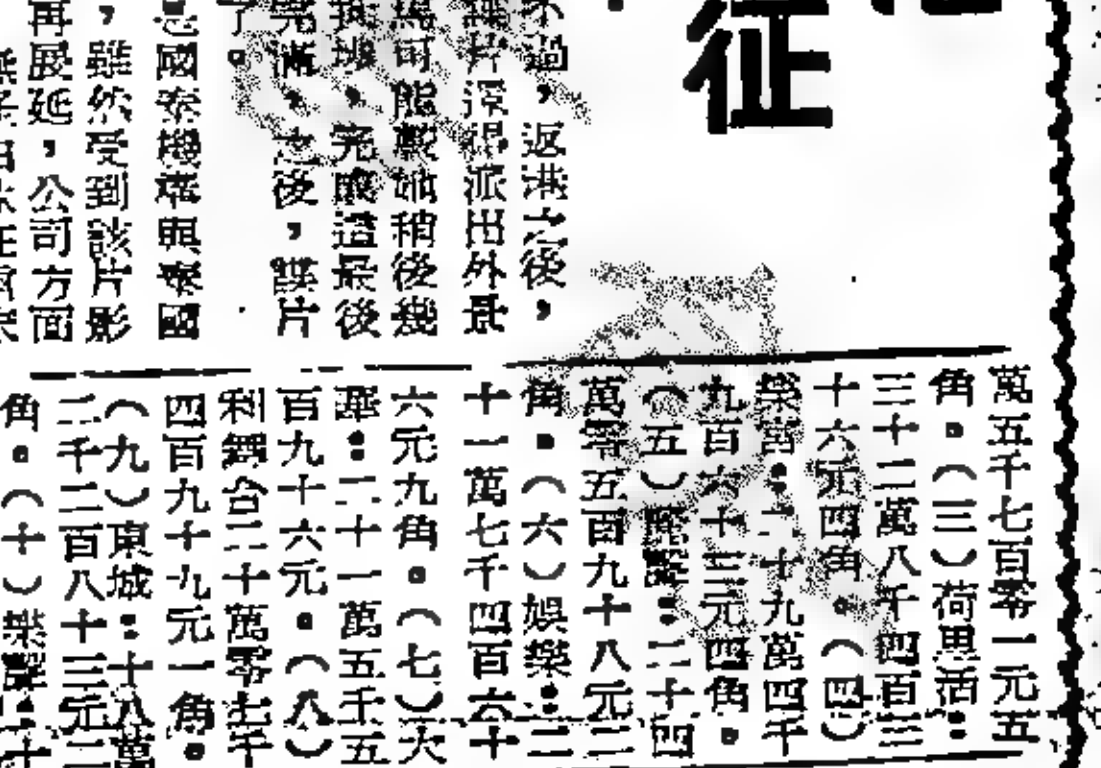 征
不過，返港之後，
深得派出外景
馬可能載她稍後幾
拔埗，完成這最後
完滿，之後，諜片
了。
國泰機構與泰國
，雖然受到該片影
再展延，公司方面
萬五千七百零一元五
角。（三）荷里活：
三十二萬八千四百三
十六元四角。（四）
樂宮：二十九萬四千
九百六十三元四角。
（五）麗聲：二十四
萬零五百九十八元二
角。（六）娛樂：二
十一萬七千四百六十
六元九角。（七）大
華：二十一萬五千五
百九十六元。（八）
利舞台二十萬零七千
四百九十九元一角。
（九）東城：十八萬
二千二百八十三元二
角。（十）樂聲：十